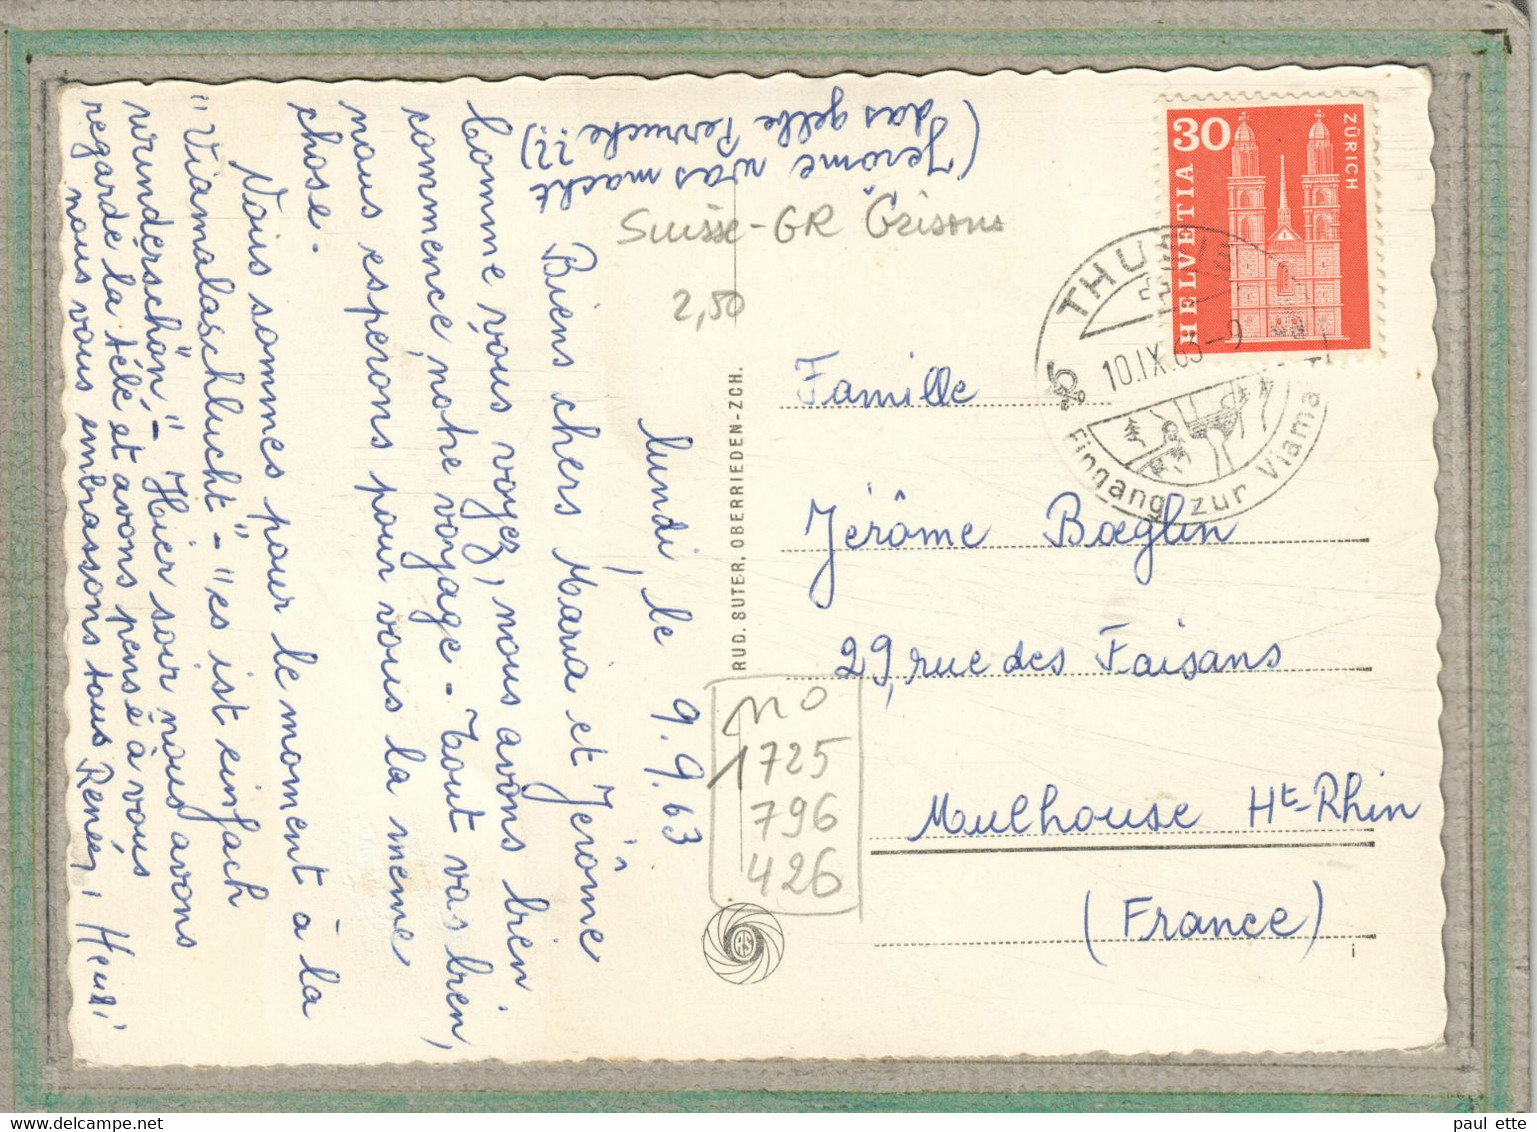 lundi, le 9.9.63
Biens chers Maria et Jérôme
Comme vous voyez, nous avons bien
commencé notre voyage - Tout vas bien,
nous esperons pour vous la même
chose.
Nois sommes pour le moment à la
"Viamalaschlucht" - "es ist einfach
wunderschön" - Hier soir nous avons
regardé la télé et avons pensé à vous
nous vous embrassons tous Renée,
(Jerôme was macht
das gelbe Perruche ??)
Suisse - GR Grisons
2,50
RUD. SUTER, OBERRIEDEN-ZCH.
no
1725
796
426
RS
30
HELVETIA
ZÜRICH
THUSIS
10.IX.63-9
Eingang zur Viamala
Famille
Jérôme Bœglin
29, rue des Faisans
Mulhouse Ht-Rhin
(France)
i
paul ette